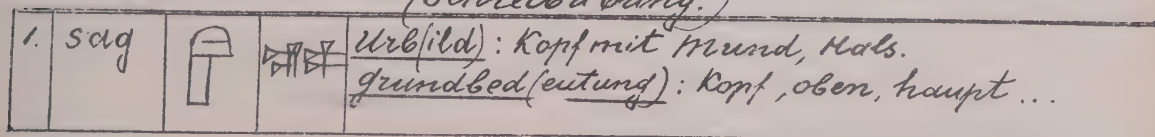 (Schreibübung.)
1. sag 𒊕 Urb(ild): Kopf mit Mund, Hals.
Grundbed(eutung): Kopf, oben, haupt...